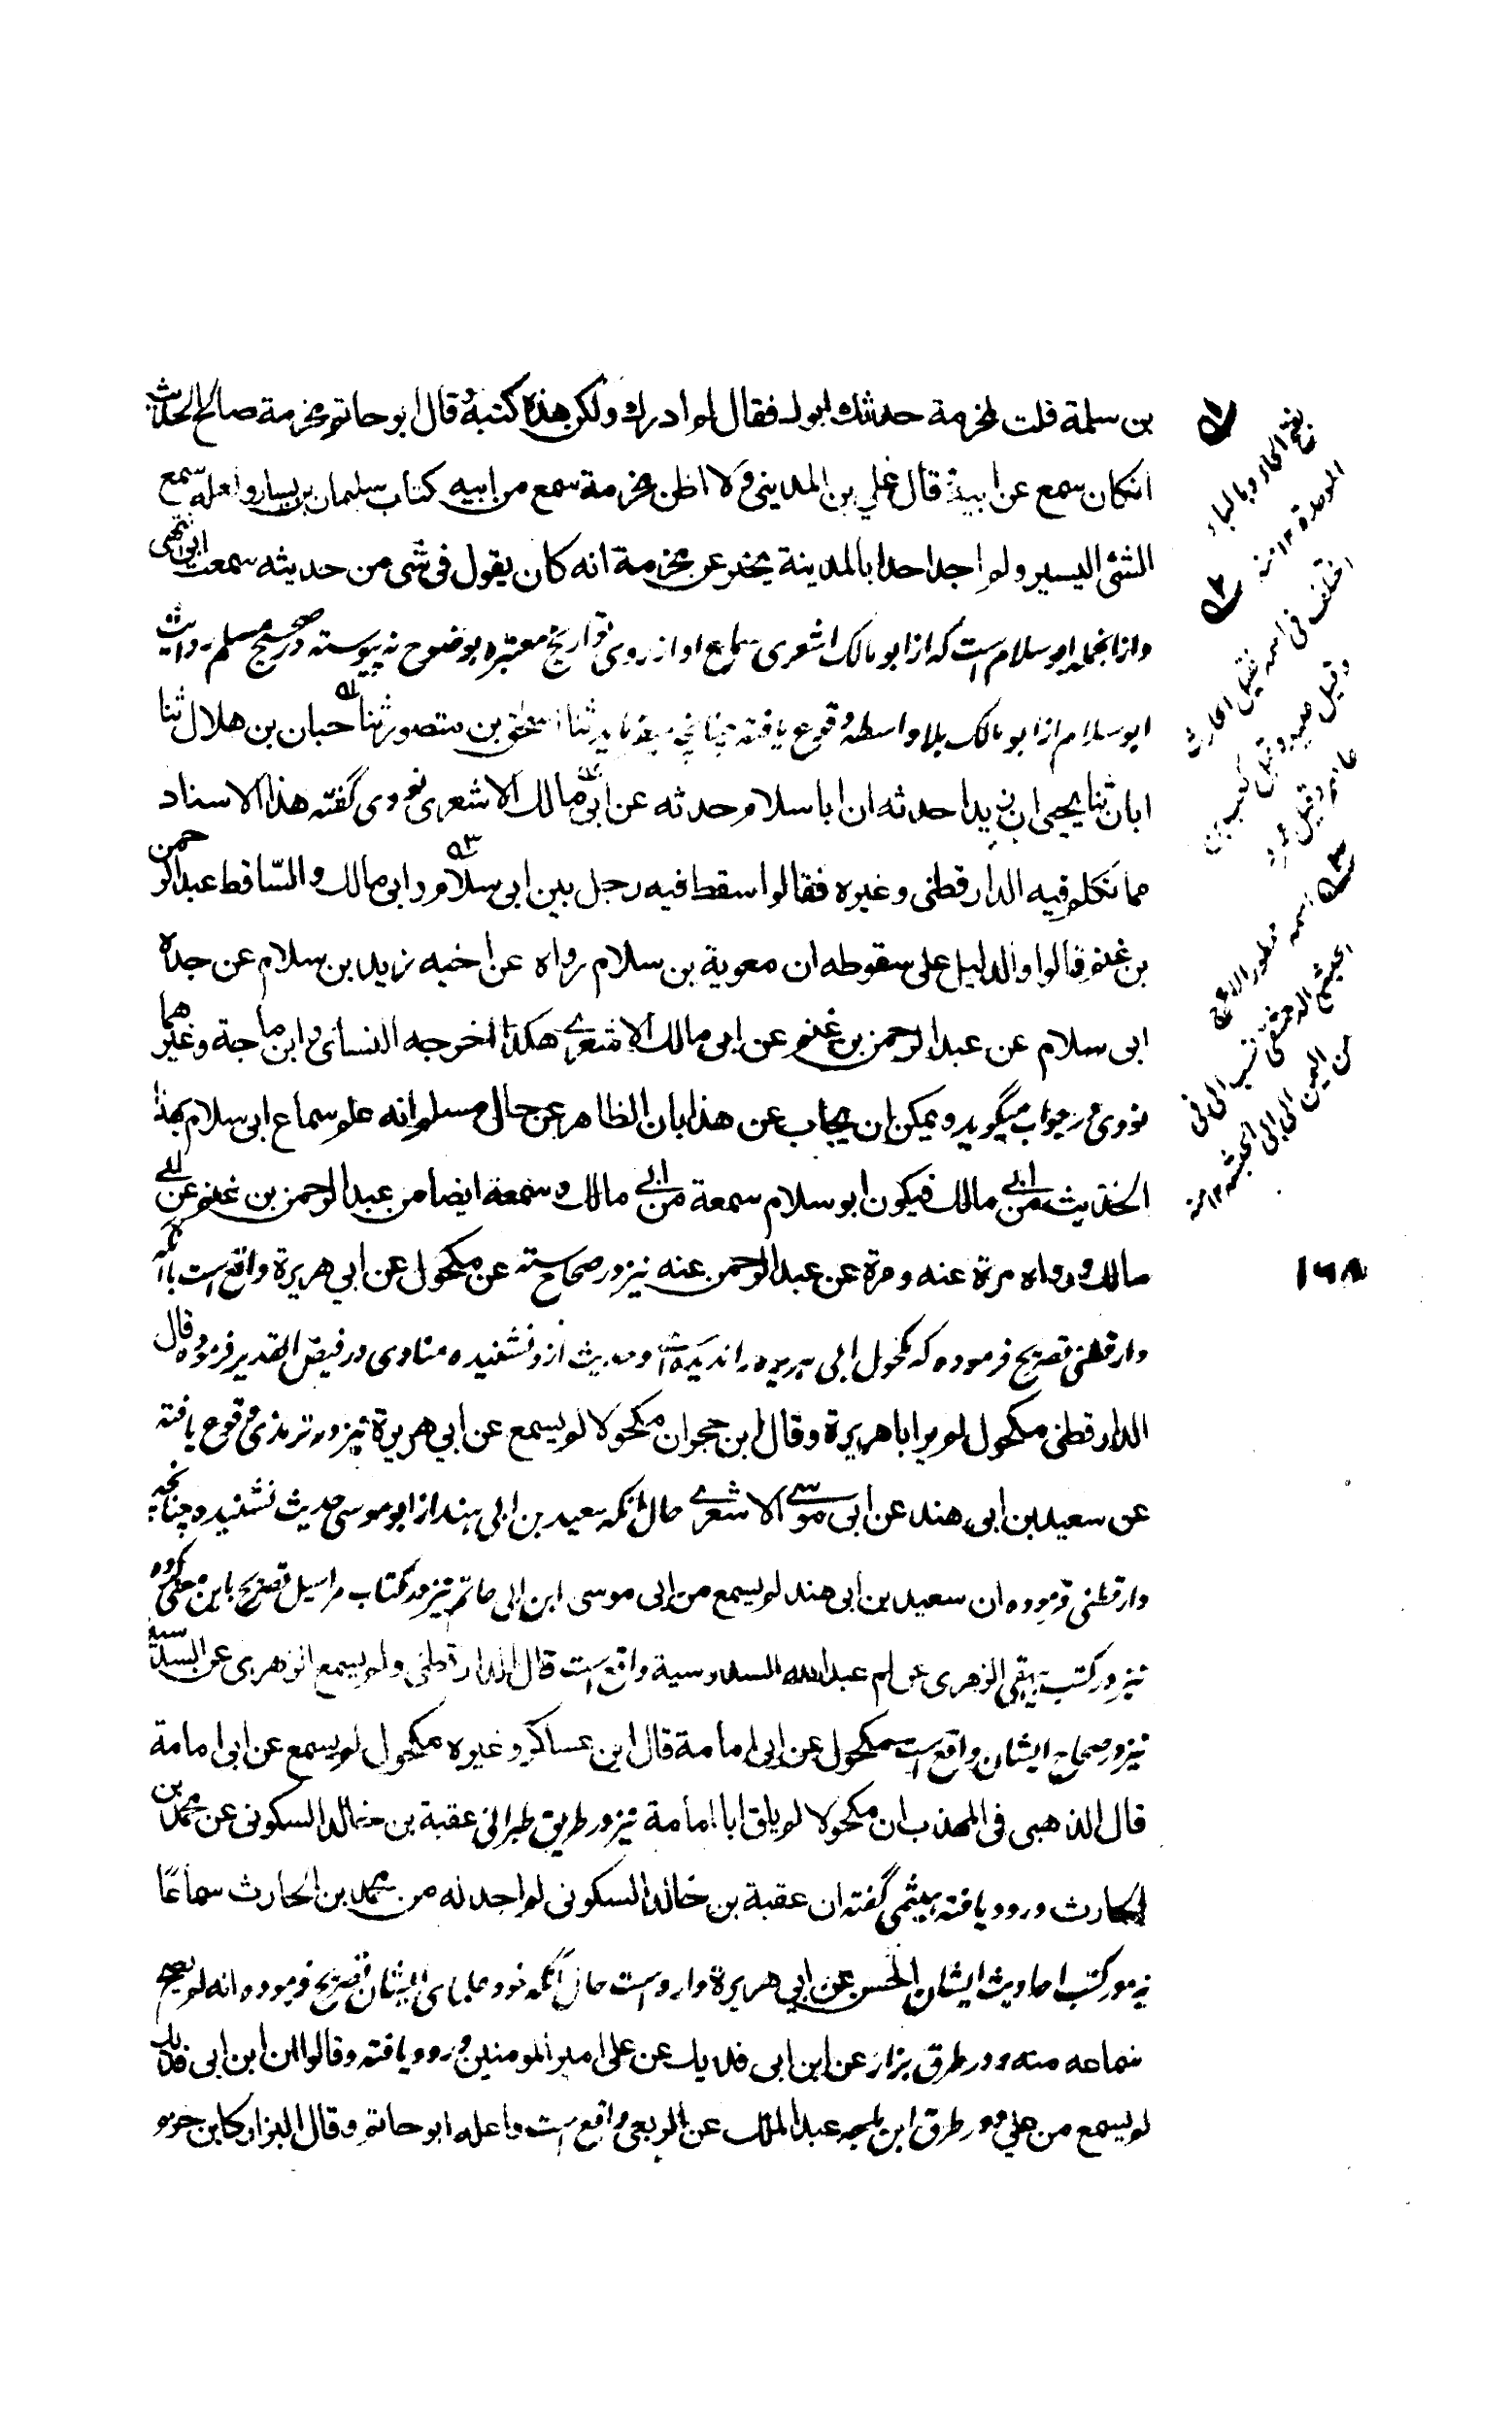 بن سلمة قلت لمخرمة حدثك ابوك فقال لم ادرك ولكن هذه كتبه قال ابو حاتم مخرمة صالح الحديث
انكان سمع عن ابيه قال علي بن المديني ولا اظن مخرمة سمع من ابيه كتاب سليمان بن يسار ولعله سمع
الشئ اليسير ولم اجد احدا بالمدينة يخبر عن مخرمة انه كان يقول فى شى من حديثه سمعت ابى انتهى
وازانجمله ابو سلام است كه از ابو مالك اشعرى سماع او از روى تواريخ معتبره بوضوح نه پيوسته در صحيح مسلم روايت
ابو سلام از ابو مالك بلا واسطه وقوع يافته چنانچه ميفرمايد ثنا اسحق بن منصور ثنا حبان بن هلال ثنا
ابان ثنا يحيى ان زيدا حدثه ان ابا سلام حدثه عن ابى مالك الاشعرى نووى گفته هذا الاسناد
مما تكلم فيه الدارقطنى وغيره فقالوا سقط فيه رجل بين ابى سلام وابى مالك والساقط عبد الرحمن
بن غنم قالوا والدليل على سقوطه ان معوية بن سلام رواه عن اخيه زيد بن سلام عن جده
ابى سلام عن عبد الرحمن بن غنم عن ابى مالك الاشعرے هكذا اخرجه النسائى وابن ماجة وغيرهما
نووى در جواب ميگويد ويمكن ان يجاب عن هذا بان الظاهر عن حال مسلم انه علم سماع ابى سلام لهذا
الحديث من ابي مالك فيكون ابو سلام سمعه من ابي مالك وسمعه ايضا من عبد الرحمن بن غنم عن ابي
مالك ورواه مرة عنه ومرة عن عبد الرحمن عنه نيز در صحاح سته عن مكحول عن ابي هريرة واقع است باآنكه
دارقطنى تصريح فرموده كه مكحول ابى هريره را نديده است وحديث ازو نشنيده مناوى در فيض القدير فرموده قال
الدارقطنى مكحول لم ير ابا هريرة وقال ابن حجر ان مكحولا لم يسمع عن ابي هريرة نيز در ترمذى وقوع يافته
عن سعيد بن ابى هند عن ابى موسے الاشعرے حال آنكه سعيد بن ابى هند از ابو موسى حديث نشنيده چنانچه
دارقطنى فرموده ان سعيد بن ابى هند لم يسمع من ابى موسى ابن ابى حاتم نيز در كتاب مراسيل تصريح باين معنى كرده
نيز در كتب بيهقى الزهرى عن ام عبد الله السدوسية واقع است قال الدارقطنى ولم يسمع الزهرى عن السدوسية
نيز در صحاح ايشان واقع است مكحول عن ابى امامة قال ابن عساكر وغيره مكحول لم يسمع عن ابى امامة
قال الذهبى فى المهذب ان مكحولا لم يلق ابا امامة نيز در طريق طبرانى عقبة بن خالد السكونى عن محمد بن
الحارث ورود يافته هيثمى گفته ان عقبة بن خالد السكونى لم اجد له من محمد بن الحارث سماعا
نيز در كتب احاديث ايشان الحسن عن ابي هريرة وارد است حال آنكه خود علماى ايشان تصريح فرموده انه لم يصح
سماعه منه ودر طرق بزار عن ابن ابى فديك عن على امير المومنين ورود يافته وقالوا ان ابن ابى فديك
لم يسمع من علي ودر طرق ابن ماجه عبد الملك عن الربعى واقع است واعله ابو حاتم وقال البزار كابن حزم
بفتح الحاء وبالباء
الموحدة ١٢ منه
اختلف فى اسمه فقيل الحارث
وقيل عبيد وقيل كعب بن
عاصم وقيل عمرو
اسمه ممطور الاعرج
الحبشى الدمشقى نسب الى حى
من اليمن لا الى الحبشة ١٢ منه
١٦٨